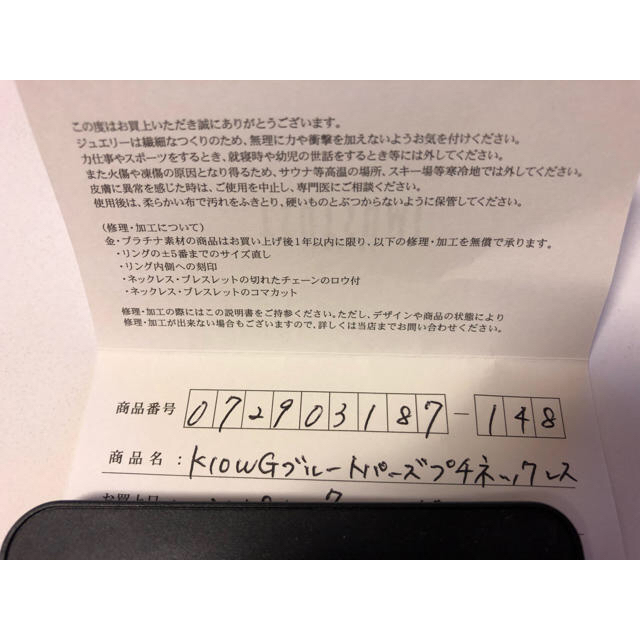 この度はお買上いただき誠にありがとうございます。
ジュエリーは繊細なつくりのため、無理に力や衝撃を加えないようお気を付けください。
力仕事やスポーツをするとき、就寝時や幼児の世話をするとき等には外してください。
また火傷や凍傷の原因となり得るため、サウナ等高温の場所、スキー場等寒冷地では外してください。
皮膚に異常を感じた時は、ご使用を中止し、専門医にご相談ください。
使用後は、柔らかい布で汚れをふきとり、硬いものとぶつからないように保管してください。
(修理・加工について)
金・プラチナ素材の商品はお買い上げ後1年以内に限り、以下の修理・加工を無償で承ります。
・リングの±5番までのサイズ直し
・リング内側への刻印
・ネックレス・ブレスレットの切れたチェーンのロウ付
・ネックレス・ブレスレットのコマカット
修理・加工の際にはこの説明書をご持参ください。ただし、デザインや商品の状態により
修理・加工が出来ない場合もございますので、詳しくは当店までお問い合わせください。
商品番号 072903187-148
商品名:K10WGブルートパーズプチネックレス
お買上日